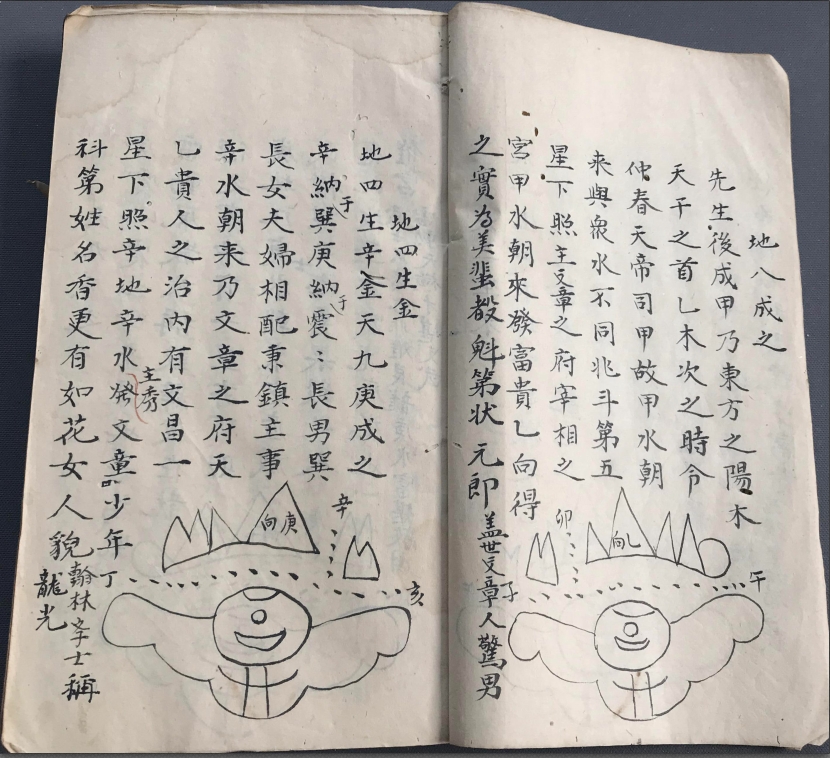 地八成之
先生後成甲乃東方之陽木
天干之首乚木次之時令
仲春天帝司甲故甲水朝
來與衆水不同北斗第五
星下照主文章之府宰相之
宮甲水朝來發富貴乚向得
之實為美蜚毅魁第状元郎盖世文章人驚男
卯
向乚
子
午
地四生金
地四生辛金天九庚成之
辛納于巽庚納于震〻長男巽
長女夫婦相配秉鎮主事
辛水朝来乃文章之府天
乚貴人之治内有文昌一
星下照辛地辛水發主秀文章少年
科第姓名香更有如花女人貌
翰林学士稱
龍光
辛
向庚
丁
亥